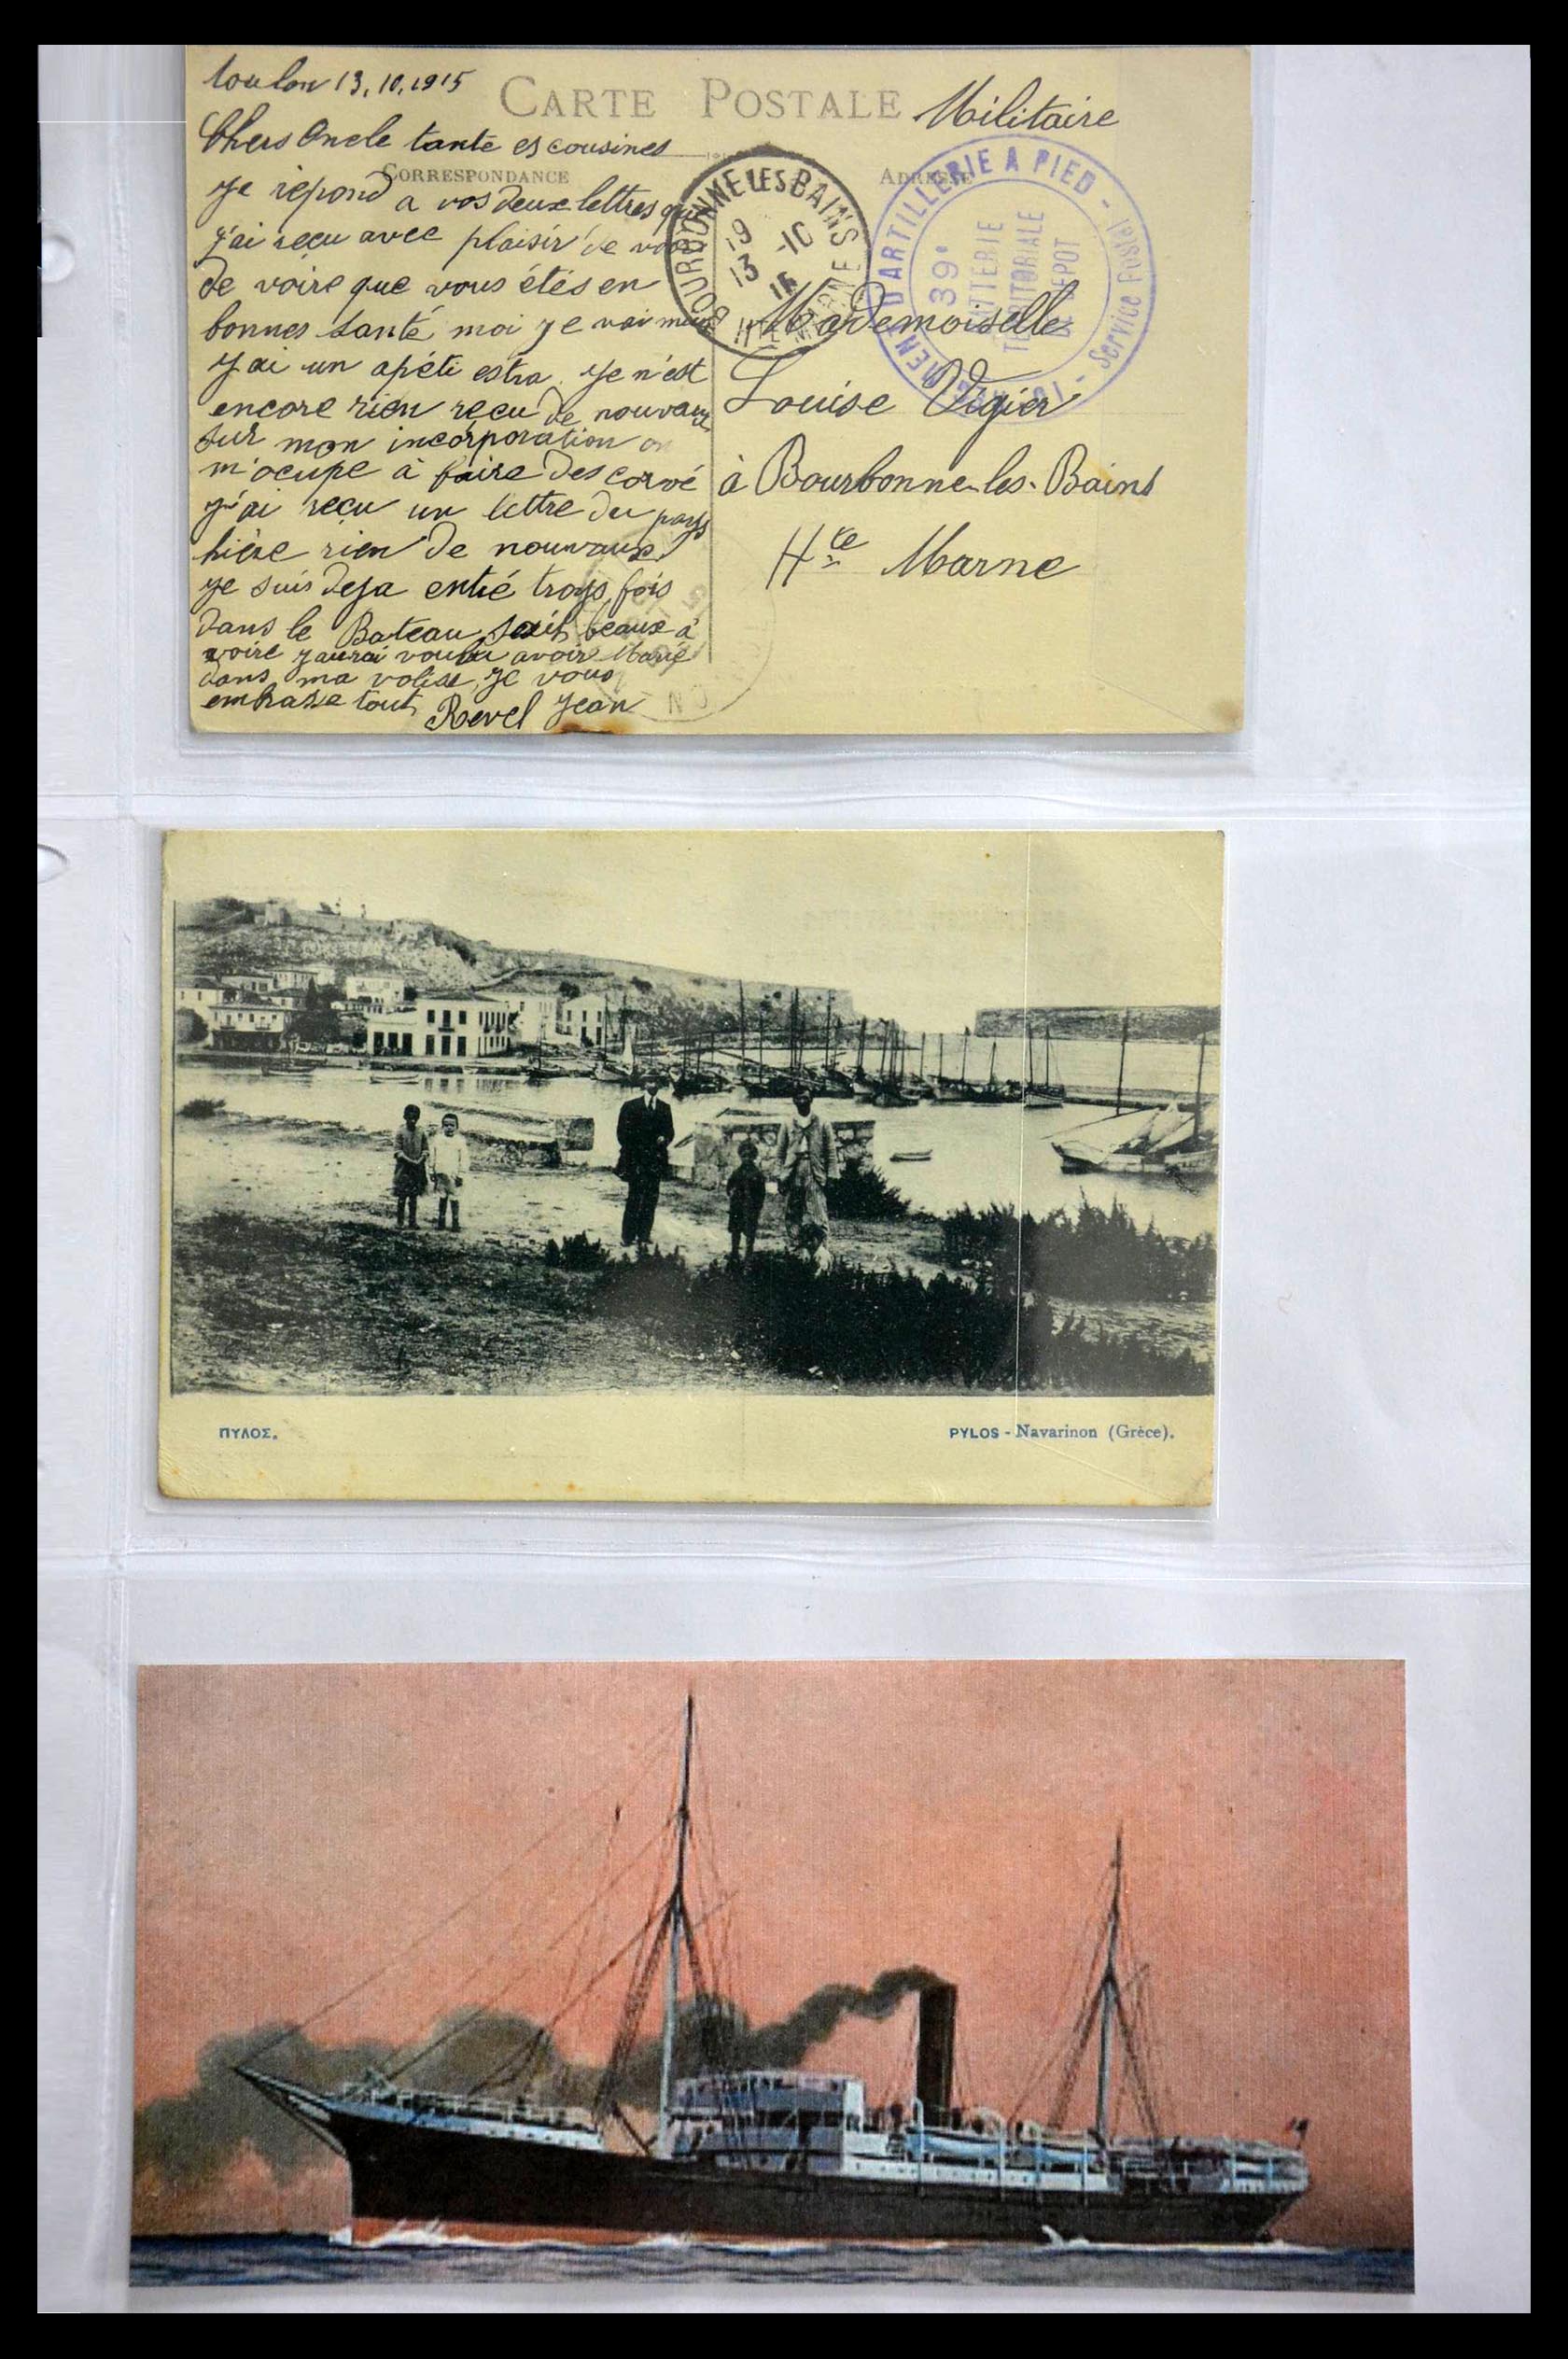 Toulon 13.10.1915
CARTE POSTALE
Militaire
Chers Oncle tante es cousines
CORRESPONDANCE
ADRESSE
Je répond a vos deux lettres que
j'ai reçu avec plaisir de
de voire que vous étés en
bonnes santé moi je vai mieux
j'ai un apéti estra. Je n'est
encore rien reçu de nouvaux
sur mon incorporation on
m'ocupe à faire des corvé
j'ai reçu un lettre du pays
hière rien de nouvaux
je suis deja entré troys fois
dans le Bateau sait beaux a
voire j'aurai voulu avoir Marie
dans ma valise, je vous
embrase tout Revel Jean
BOURBONNE LES BAINS
19 -10
13 15
HTE MARNE
D'ARTILLERIE A PIED - Service Postal
39e
BATTERIE
TERRITORIALE
DE DEPOT
Mademoiselle
Louise Vigier
à Bourbonne-les-Bains
Hte Marne
ΠΥΛΟΣ.
PYLOS - Navarinon (Grèce).